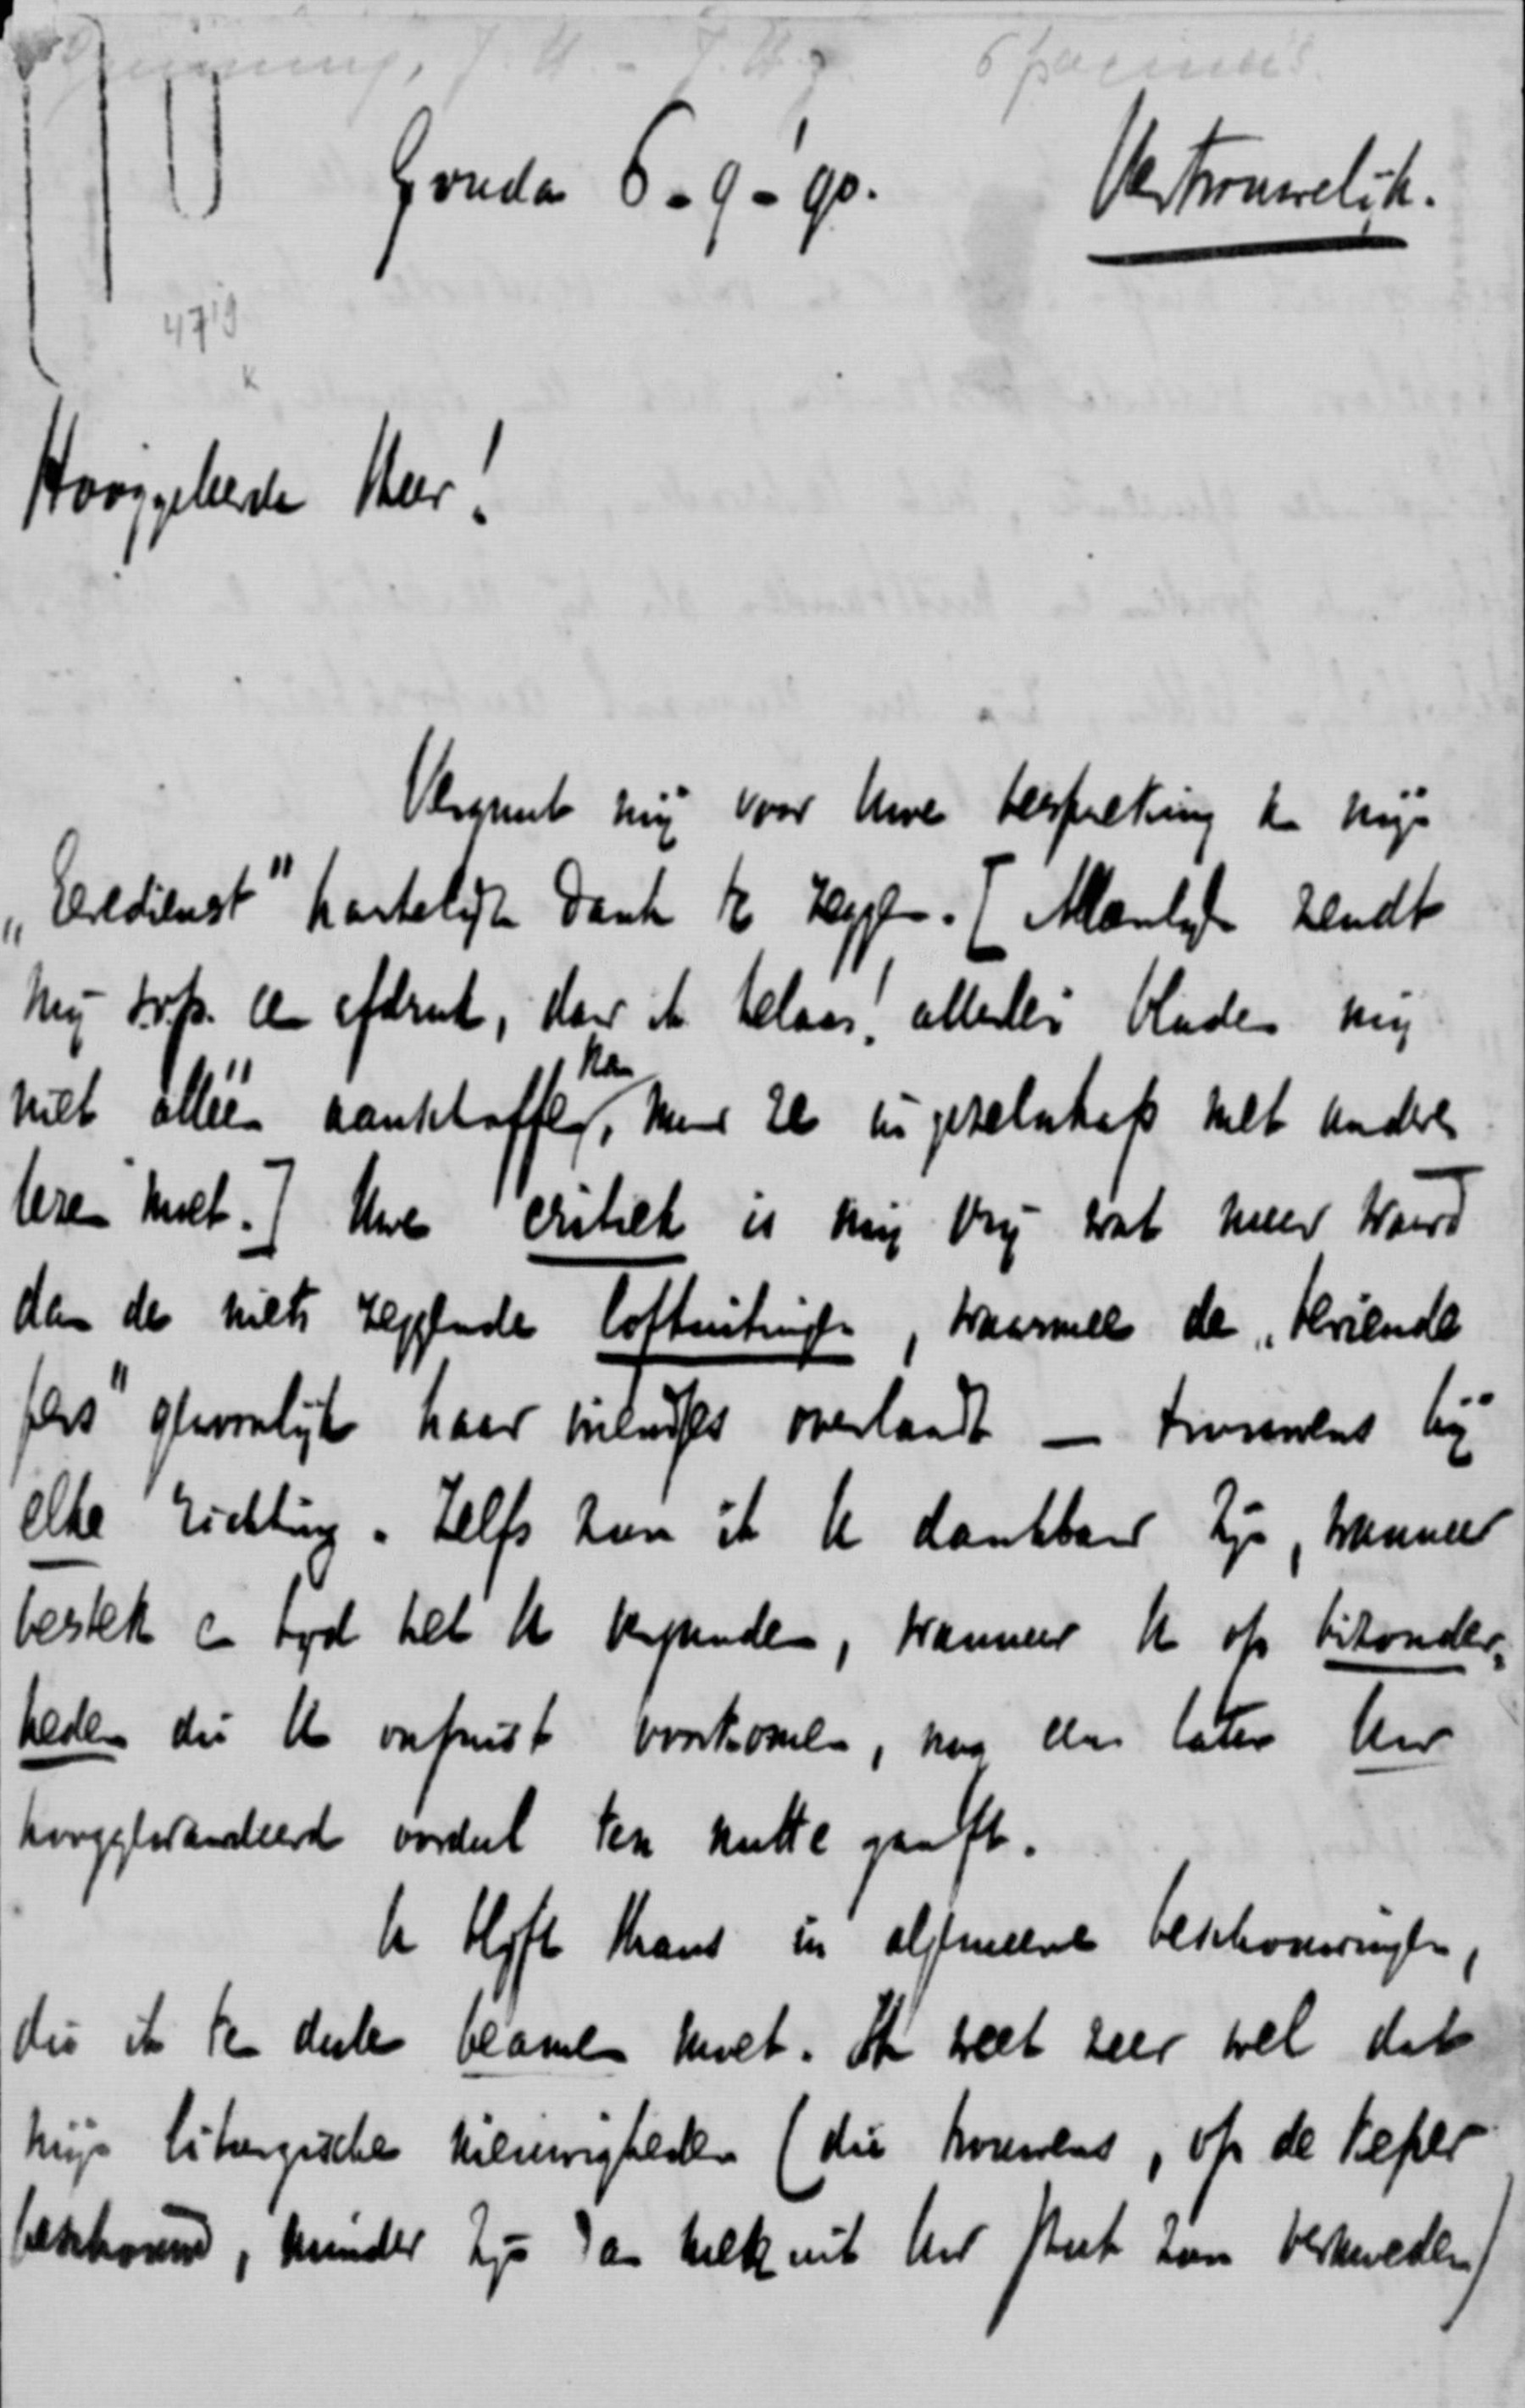 Gunning, J.H. - J.Hz.
Gouda 6-9-'90. Vertrouwelijk.
4719
Hooggeleerde Heer!
Vergunt mij voor Uwe bespreking v. mijn
„Eeredienst" hartelijk dank te zeggen. [Allenlijk zendt
mij een afdruk, daar ik helaas! allerlei bladen mij
niet alléén aanschaffen kan, maar ze in gezelschap met andere
lezen moet.] Uwe critiek is mij vrij wat meer waard
dan de niets zeggende loftuitingen, waarmee de „bevriende
pers" gewoonlijk haar vriendjes overlaadt — trouwens bij
elke richting. Zelfs zou ik U dankbaar zijn, wanneer
bestek en tijd het U vergunden, wanneer U op bizonder-
heden die U onjuist voorkomen, nog eens later Uw
hooggewaardeerd oordeel ten nutte gaaft.
U blijft thans in algemeene beschouwingen,
die ik ten deele beamen moet. Ik weet zeer wel dat
mijn liturgische nieuwigheden (die trouwens, op de keper
beschouwd, minder zijn dan men uit Uw stuk zou vermoeden)